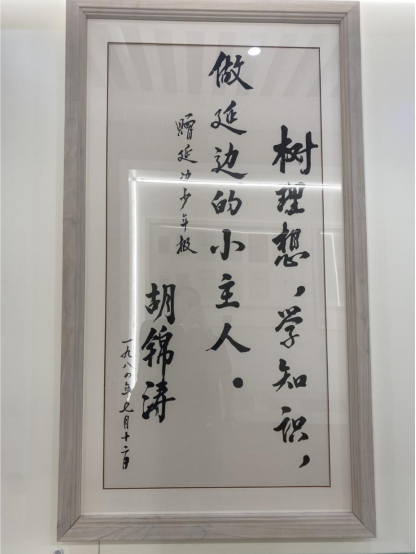 树理想，学知识，
做延边的小主人。
赠延边少年报
胡锦涛
一九八四年七月十二日